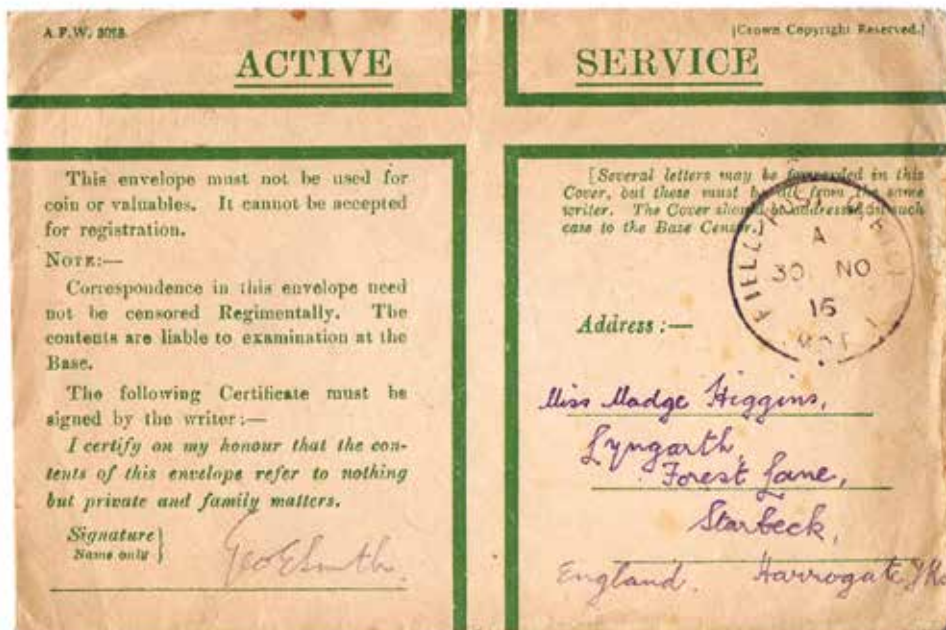 A.F.W. 3078.
[Crown Copyright Reserved.]
ACTIVE SERVICE
This envelope must not be used for
coin or valuables. It cannot be accepted
for registration.
NOTE:—
Correspondence in this envelope need
not be censored Regimentally. The
contents are liable to examination at the
Base.
The following Certificate must be
signed by the writer:—
I certify on my honour that the con-
tents of this envelope refer to nothing
but private and family matters.
Signature
Name only }
Geo E Smith.
[Several letters may be forwarded in this
Cover, but these must be all from the same
writer. The Cover should be addressed in such
case to the Base Censor.]
FIELD POST OFFICE
A
30 NO
16
Address:—
Miss Madge Higgins,
Lyngarth,
Forest Lane,
Starbeck,
England. Harrogate,